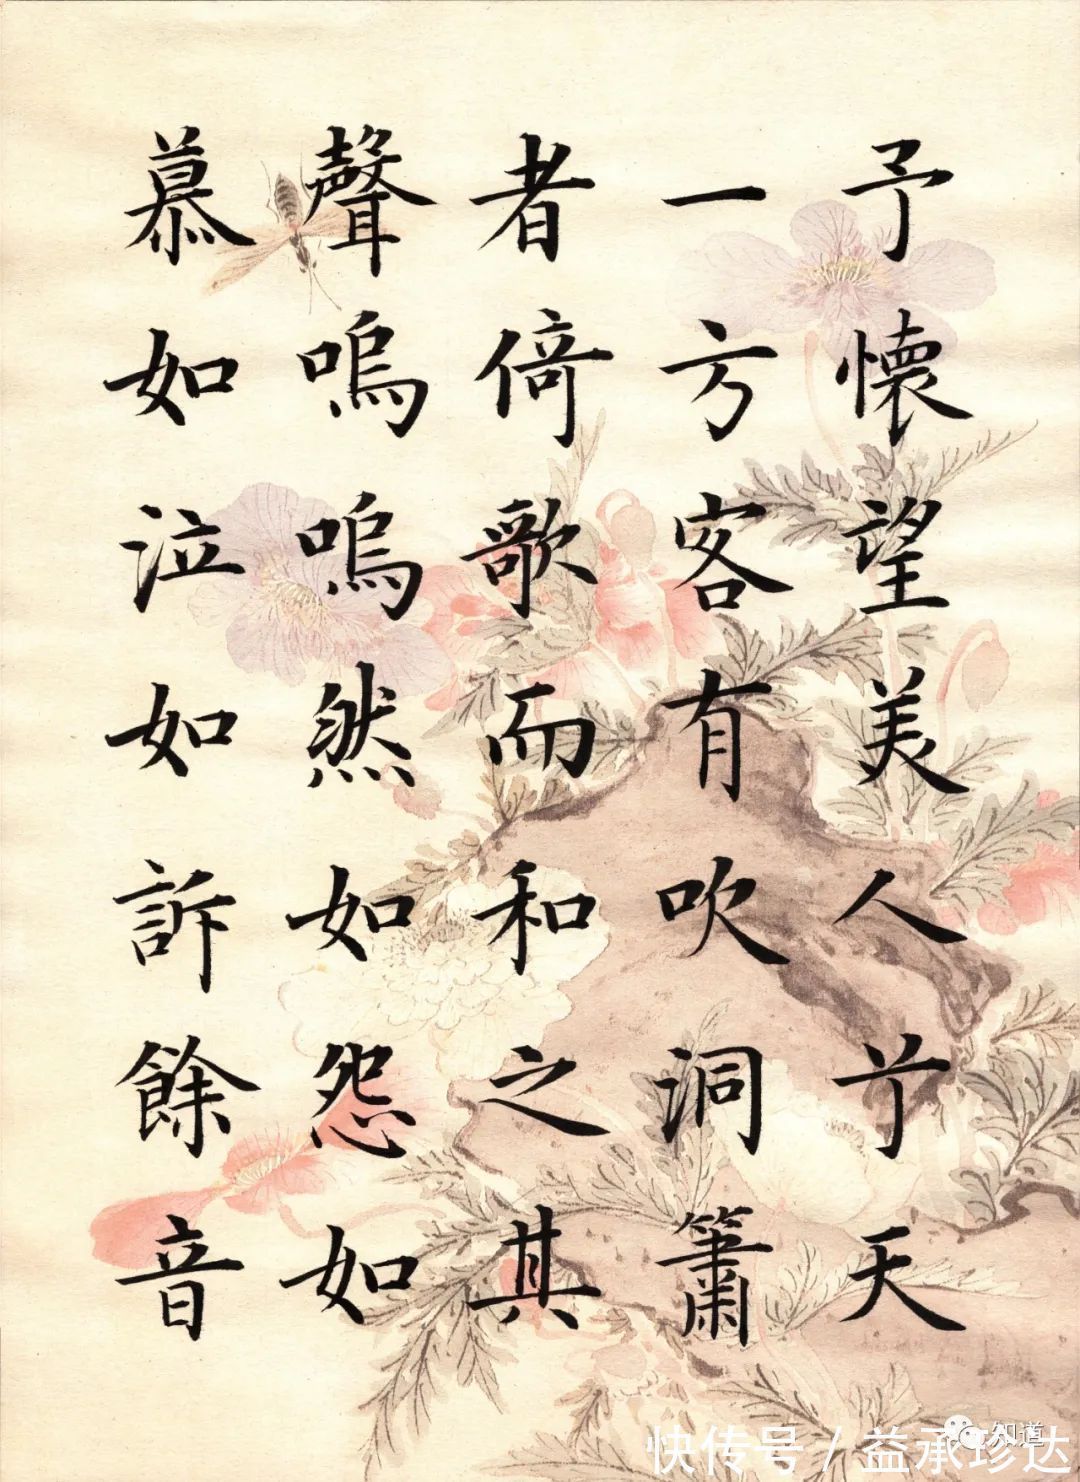 予懷望美人兮天
一方客有吹洞簫
者倚歌而和之其
聲嗚嗚然如怨如
慕如泣如訴餘音
知道
快传号 / 益承珍达